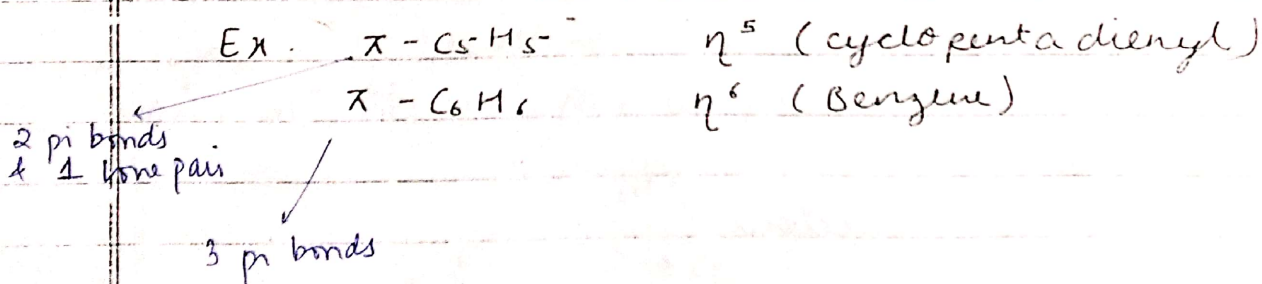 Ex. π - C5H5⁻ η⁵ (cyclopentadienyl)
π - C6H6 η⁶ (Benzene)
2 pi bonds
& 1 lone pair
3 pi bonds